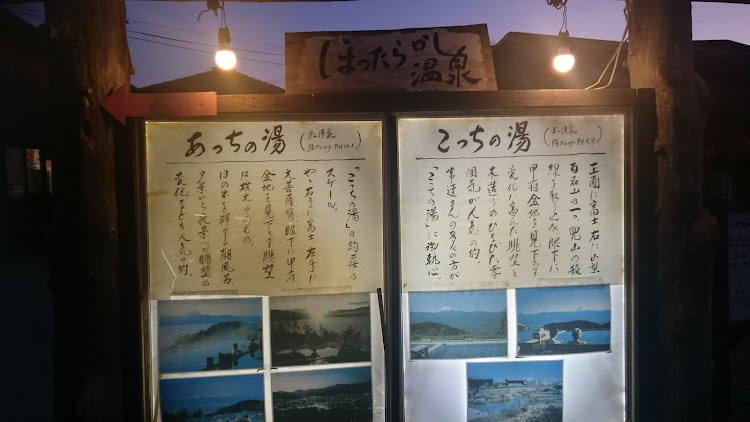 ほったらかし
温泉
あっちの湯
「こっちの湯」の約二倍の
スケール。
やゝ右手に富士 左手に
大菩薩嶺、眼下に甲府
盆地を見下す眺望
は雄大そのもの。
日の出を拝する朝風呂
夕景から夜景への眺望の
変化なども人気の的。
こっちの湯
正面に富士 右に山梨
百名山の一つ 兜山の稜
線を取り込み、眼下に
甲府盆地を見下ろす
変化に富んだ眺望と
木造りのひなびた雰
囲気が人気の的。
常連さんの多くの方が
「こっちの湯」に御執心